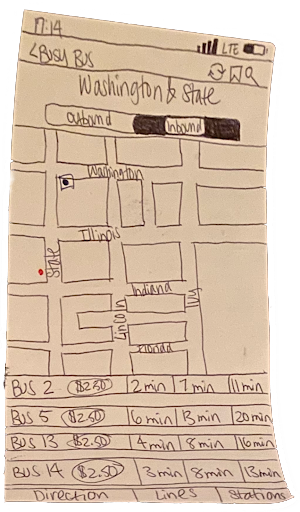 17:14
LTE
<Busy Bus
Washington & State
Outbound Inbound
Washington
Illinois
State
Indiana
Lincoln
Ivy
Florida
Bus 2 $2.50 2min 7 min 11min
Bus 5 $2.50 6 min 13min 20min
Bus 13 $2.50 4min 8min 16min
Bus 14 $2.50 3min 8min 13min
Direction Lines Stations